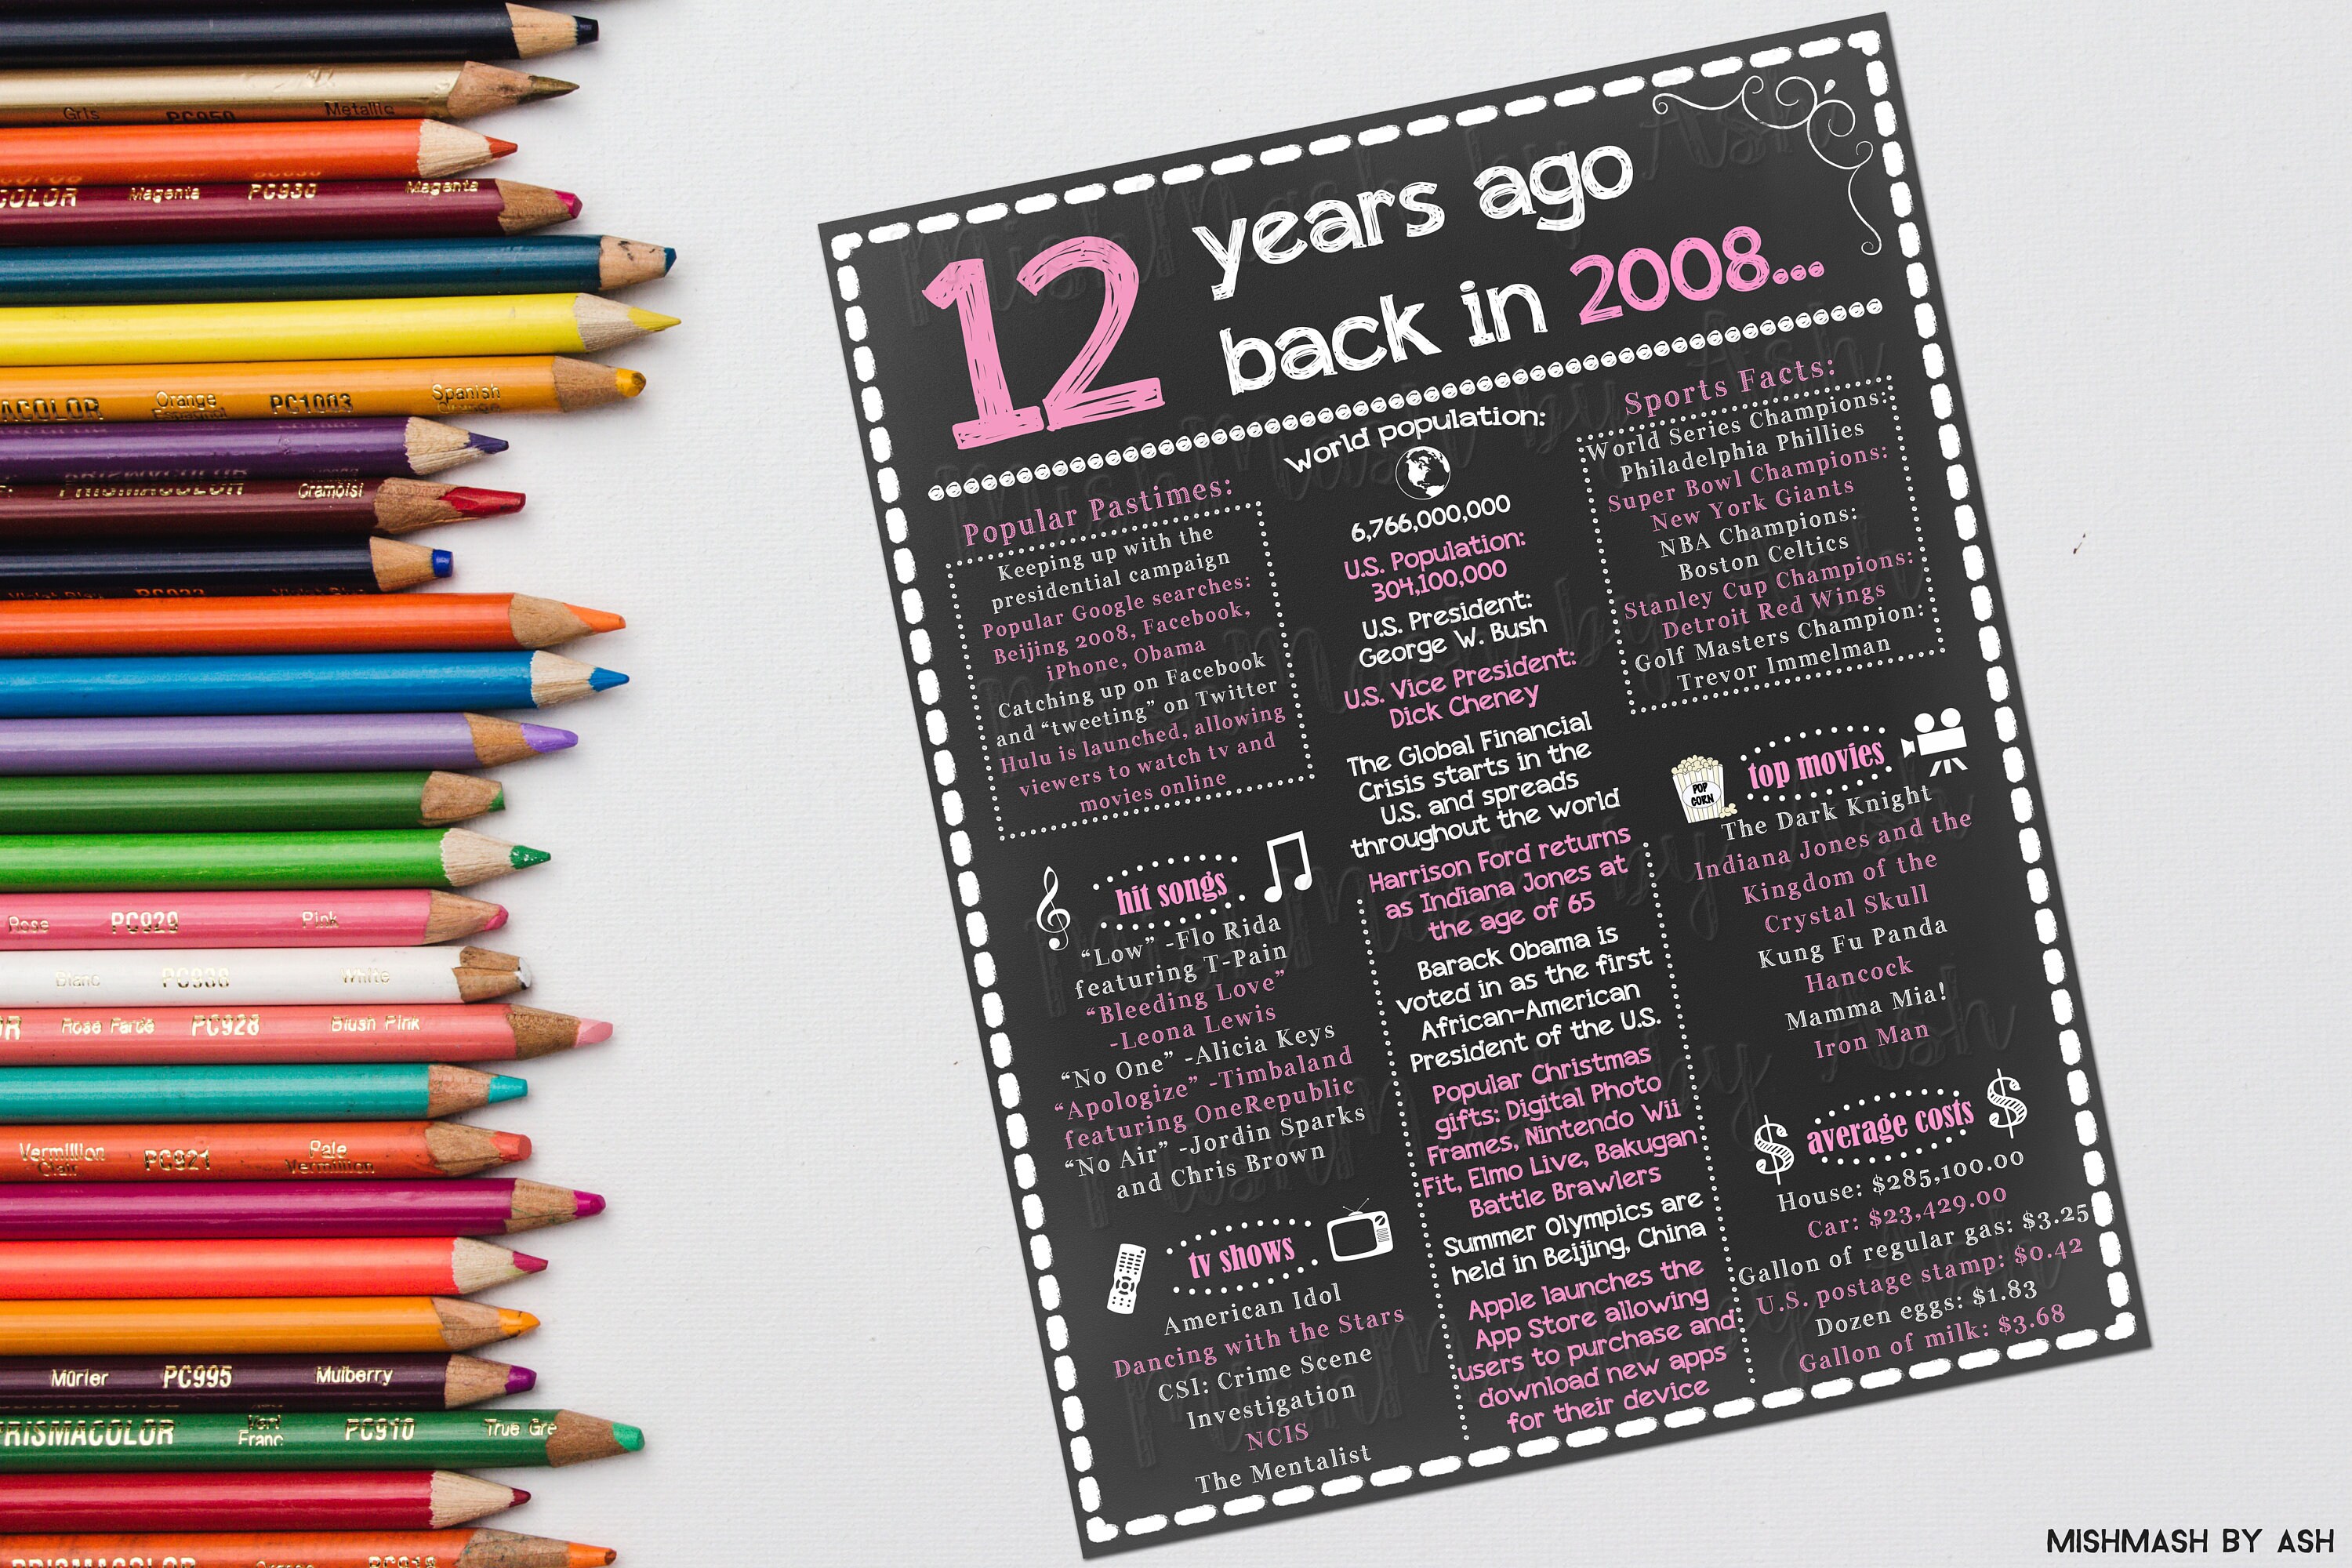 Gris PC950 Metallic
COLOR Magenta PC930 Magenta
ACOLOR Orange Espagnol PC1003 Spanish Orange
PRISMACOLOR Cramoisi
Rose PC929 Pink
Blanc PC938 White
OR Rose Farde PC928 Blush Pink
Vermillion Clair PC921 Pale Vermillion
Mûrier PC995 Mulberry
PRISMACOLOR Vert Franc PC910 True Gre
PRISMACOLOR
12 years ago
back in 2008...
Popular Pastimes:
Keeping up with the
presidential campaign
Popular Google searches:
Beijing 2008, Facebook,
iPhone, Obama
Catching up on Facebook
and “tweeting” on Twitter
Hulu is launched, allowing
viewers to watch tv and
movies online
hit songs
“Low” -Flo Rida
featuring T-Pain
“Bleeding Love”
-Leona Lewis
“No One” -Alicia Keys
“Apologize” -Timbaland
featuring OneRepublic
“No Air” -Jordin Sparks
and Chris Brown
tv shows
American Idol
Dancing with the Stars
CSI: Crime Scene
Investigation
NCIS
The Mentalist
world population:
6,766,000,000
U.S. Population:
304,100,000
U.S. President:
George W. Bush
U.S. Vice President:
Dick Cheney
The Global Financial
Crisis starts in the
U.S. and spreads
throughout the world
Harrison Ford returns
as Indiana Jones at
the age of 65
Barack Obama is
voted in as the first
African-American
President of the U.S.
Popular Christmas
gifts: Digital Photo
Frames, Nintendo Wii
Fit, Elmo Live, Bakugan
Battle Brawlers
Summer Olympics are
held in Beijing, China
Apple launches the
App Store allowing
users to purchase and
download new apps
for their device
Sports Facts:
World Series Champions:
Philadelphia Phillies
Super Bowl Champions:
New York Giants
NBA Champions:
Boston Celtics
Stanley Cup Champions:
Detroit Red Wings
Golf Masters Champion:
Trevor Immelman
POP
CORN
top movies
The Dark Knight
Indiana Jones and the
Kingdom of the
Crystal Skull
Kung Fu Panda
Hancock
Mamma Mia!
Iron Man
average costs
House: $285,100.00
Car: $23,429.00
Gallon of regular gas: $3.25
U.S. postage stamp: $0.42
Dozen eggs: $1.83
Gallon of milk: $3.68
MISHMASH BY ASH